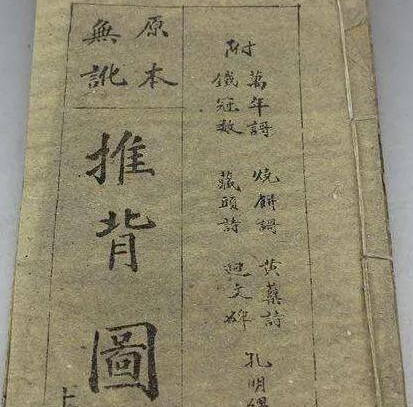 附
萬年謌 燒餅謌 黄蘗詩 孔明
鐵冠數 藏頭詩 迴文碑
原本
無訛
推背圖
上